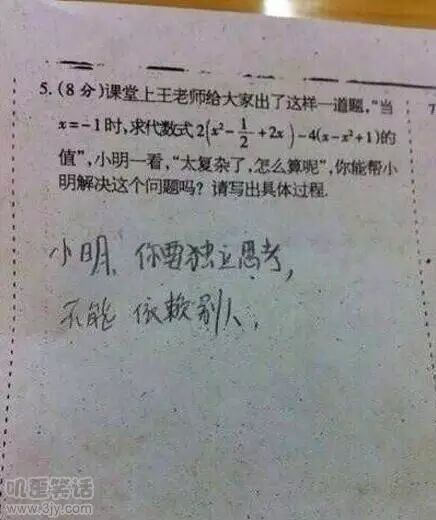 5. (8 分)课堂上王老师给大家出了这样一道题,“当
x=-1时,求代数式2(x²-1/2+2x)-4(x-x²+1)的
值”,小明一看,“太复杂了,怎么算呢”,你能帮小
明解决这个问题吗? 请写出具体过程.
7
小明、你要独立思考,
不能 依赖别人.
叽歪笑话
www.3jy.com